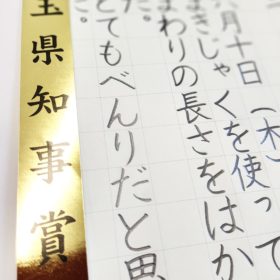 月十日（木
まきじゃくを使って
まわりの長さをはか
た。
とてもべんりだと思
た。
県知事賞